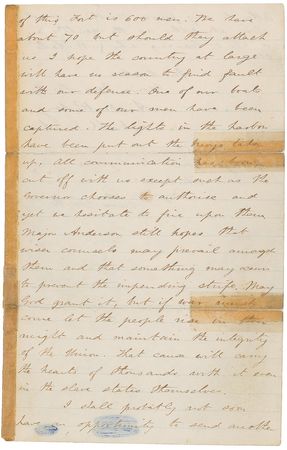 of this Fort is 600 men. We have
about 70 but should they attack
us I hope the country at large
will have no reason to find fault
with our defense. One of our boats
and some of our men have been
captured. The lights in the harbor
have been put out the buoys taken
up, all communication has been
cut off with us except such as the
Governor chooses to authorize and
yet we hesitate to fire upon them
Major Anderson still hopes that
wiser counsels may prevail amongst
them and that something may occur
to prevent the impending strife. May
God grant it, but if war must
come let the people rise in their
might and maintain the integrity
of the Union. That cause will carry
the hearts of thousands with it even
in the slave states themselves.
I shall probably not soon
have an opportunity to send another